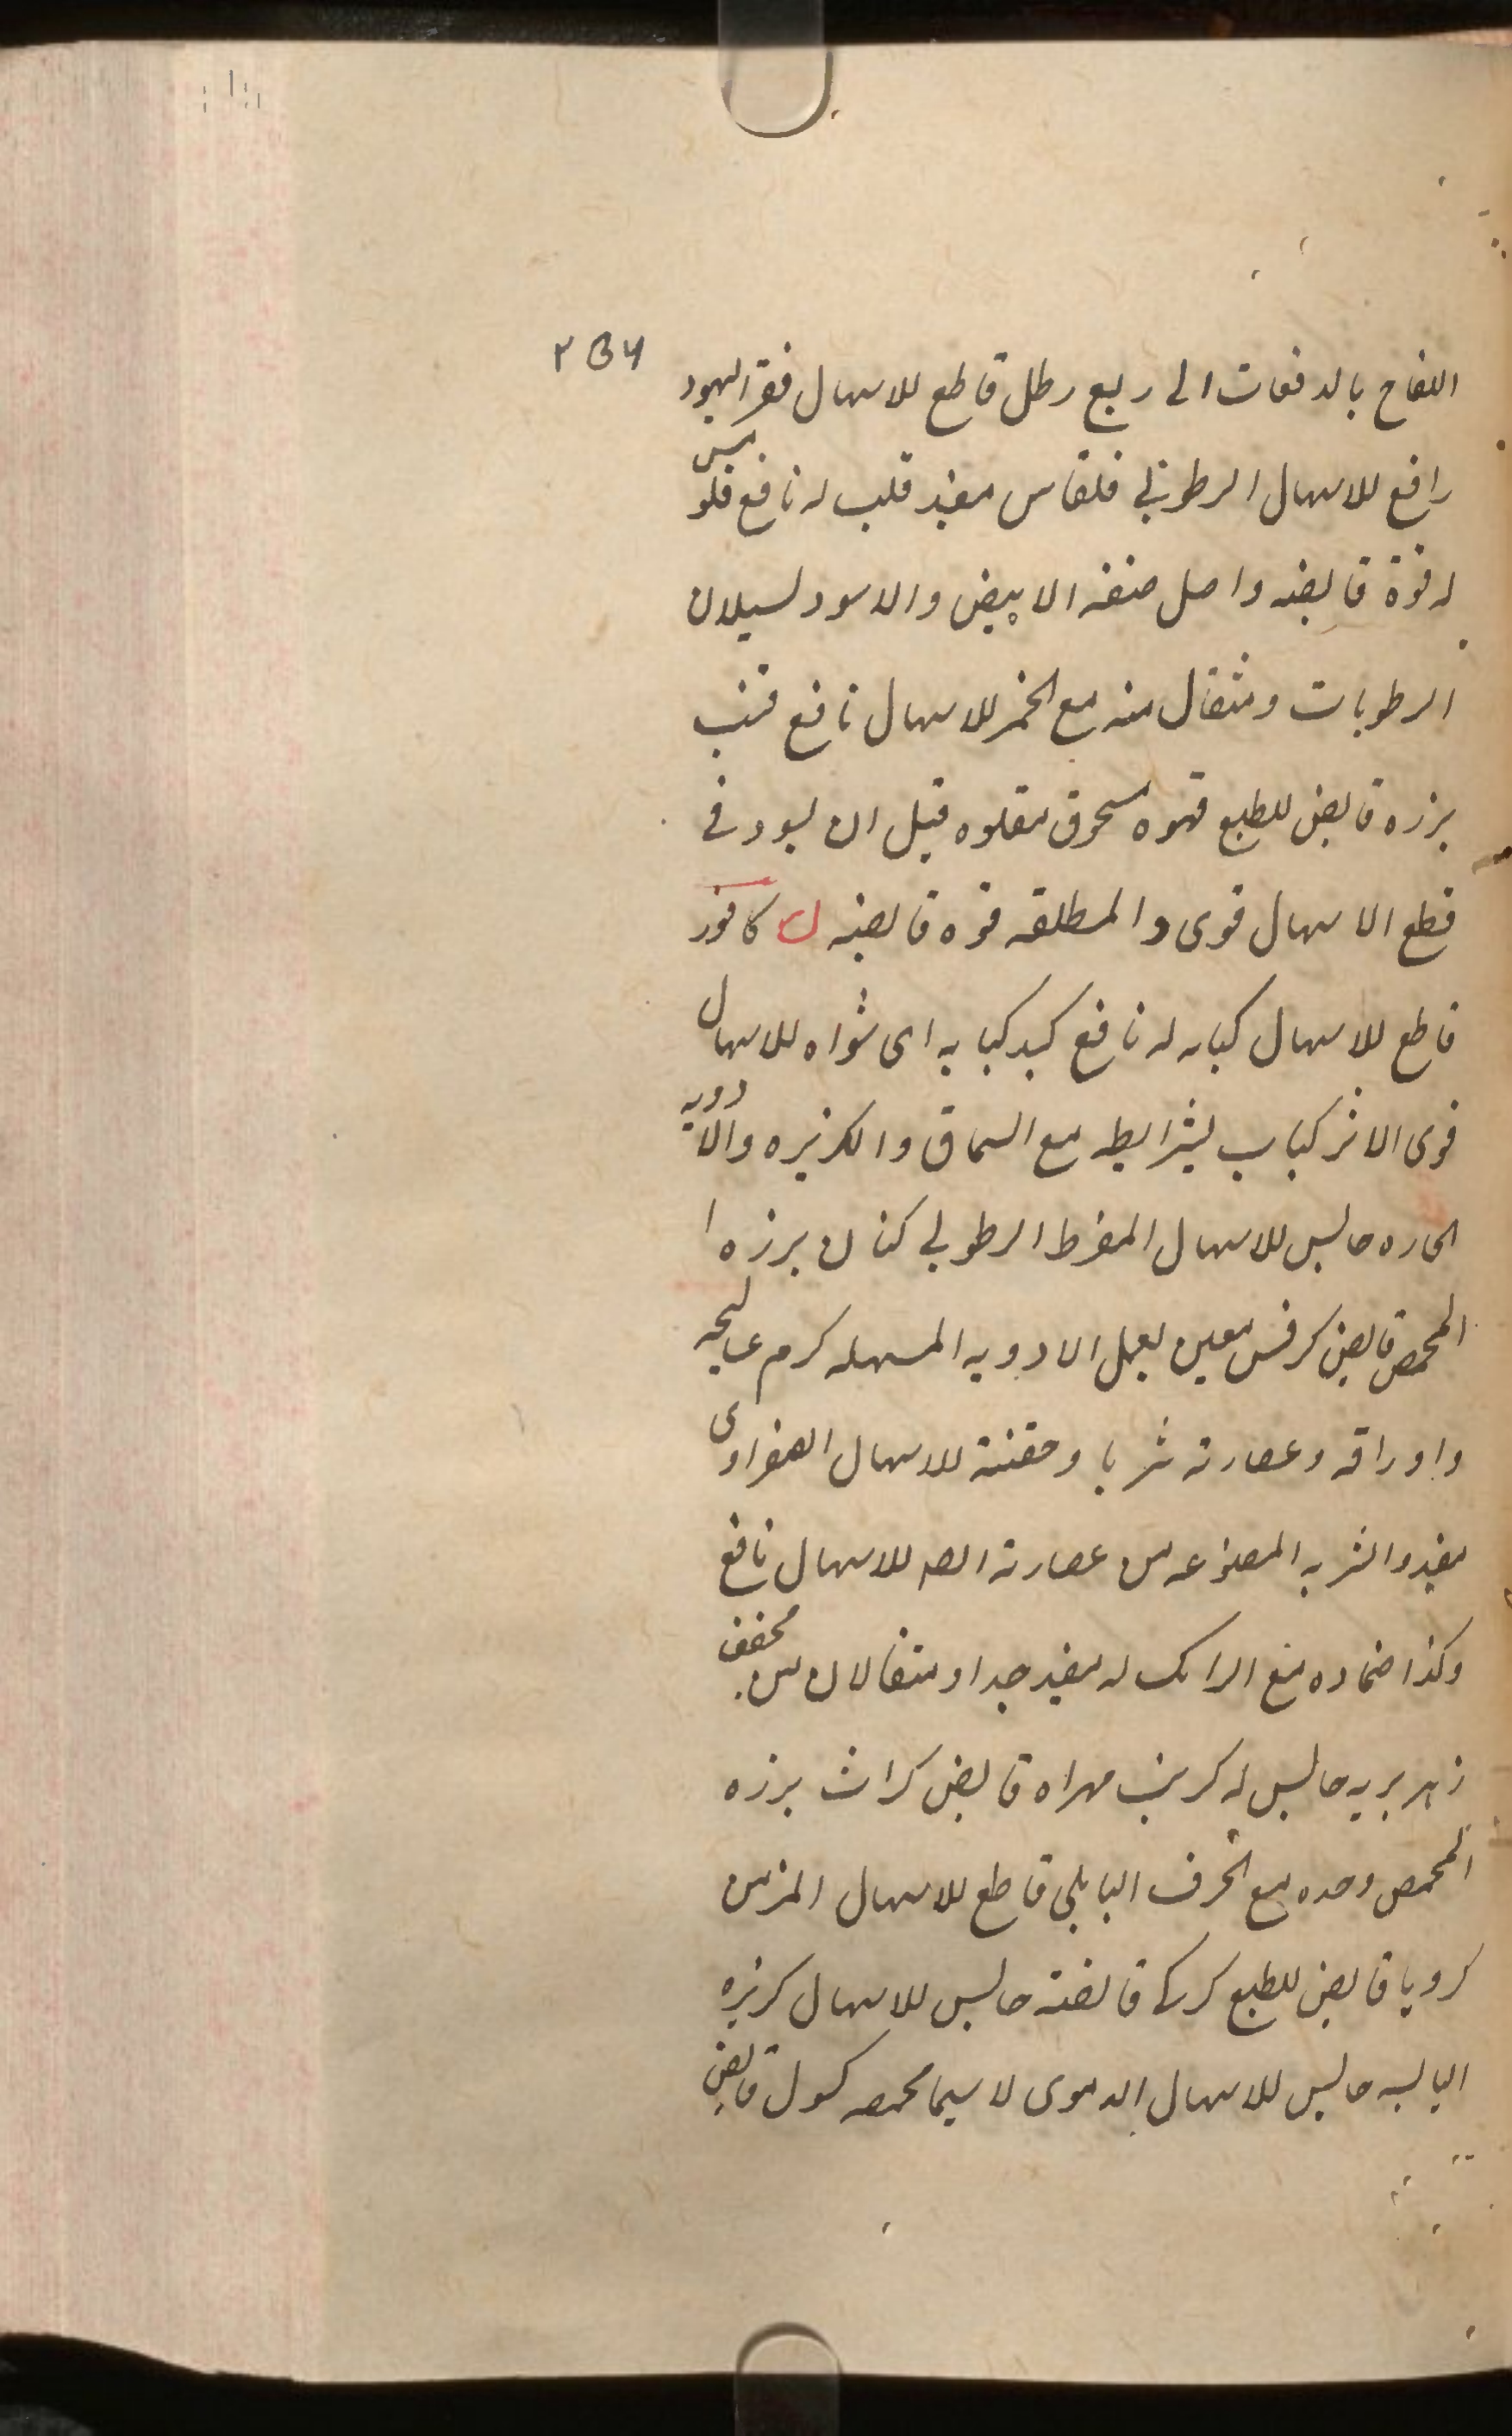 ٢٥٦
التفاح بالدفعات الى ربع رطل قاطع للاسهال فقر اليهود
رافع للاسهال الرطوبي قلقاس مفيد قلب له نافع قلومس
له قوة قابضه واصل صنفه الابيض والاسود لسيلان
الرطوبات ومثقال منه مع الخمر للاسهال نافع قنب
برزه قابض للطبع قهوه مسحوق مقلوه قبل ان يسود في
قطع الاسهال قوى والمطلقه قوه قابضه ك كافور
قاطع للاسهال كبابه له نافع كبد كبابه اى شواه للاسهال
قوى الاثر كباب بشرايطه مع السماق والكزبره والادويه
الحاره حابس للاسهال المفرط الرطوبي كتان برزه ا
المحمص قابض كرفس معين لعمل الادويه المسهله كرم عساليجه
واوراقه وعصارته شربا وحقنة للاسهال الصفراوى
مفيد والشربه المصنوعه من عصارته للاسهال نافع
وكذا ضماده مع الرامك له مفيد جدا ومثقالان من مجفف
زهر بريه حابس له كرنب مهراه قابض كراث برزه
المحمص وحده مع الحرف البابلي قاطع للاسهال المزمن
كرويا قابض للطبع كركى قانصته حابس للاسهال كزبره
اليابسه حابس للاسهال الدموى لاسيما محمصه كسول قابض